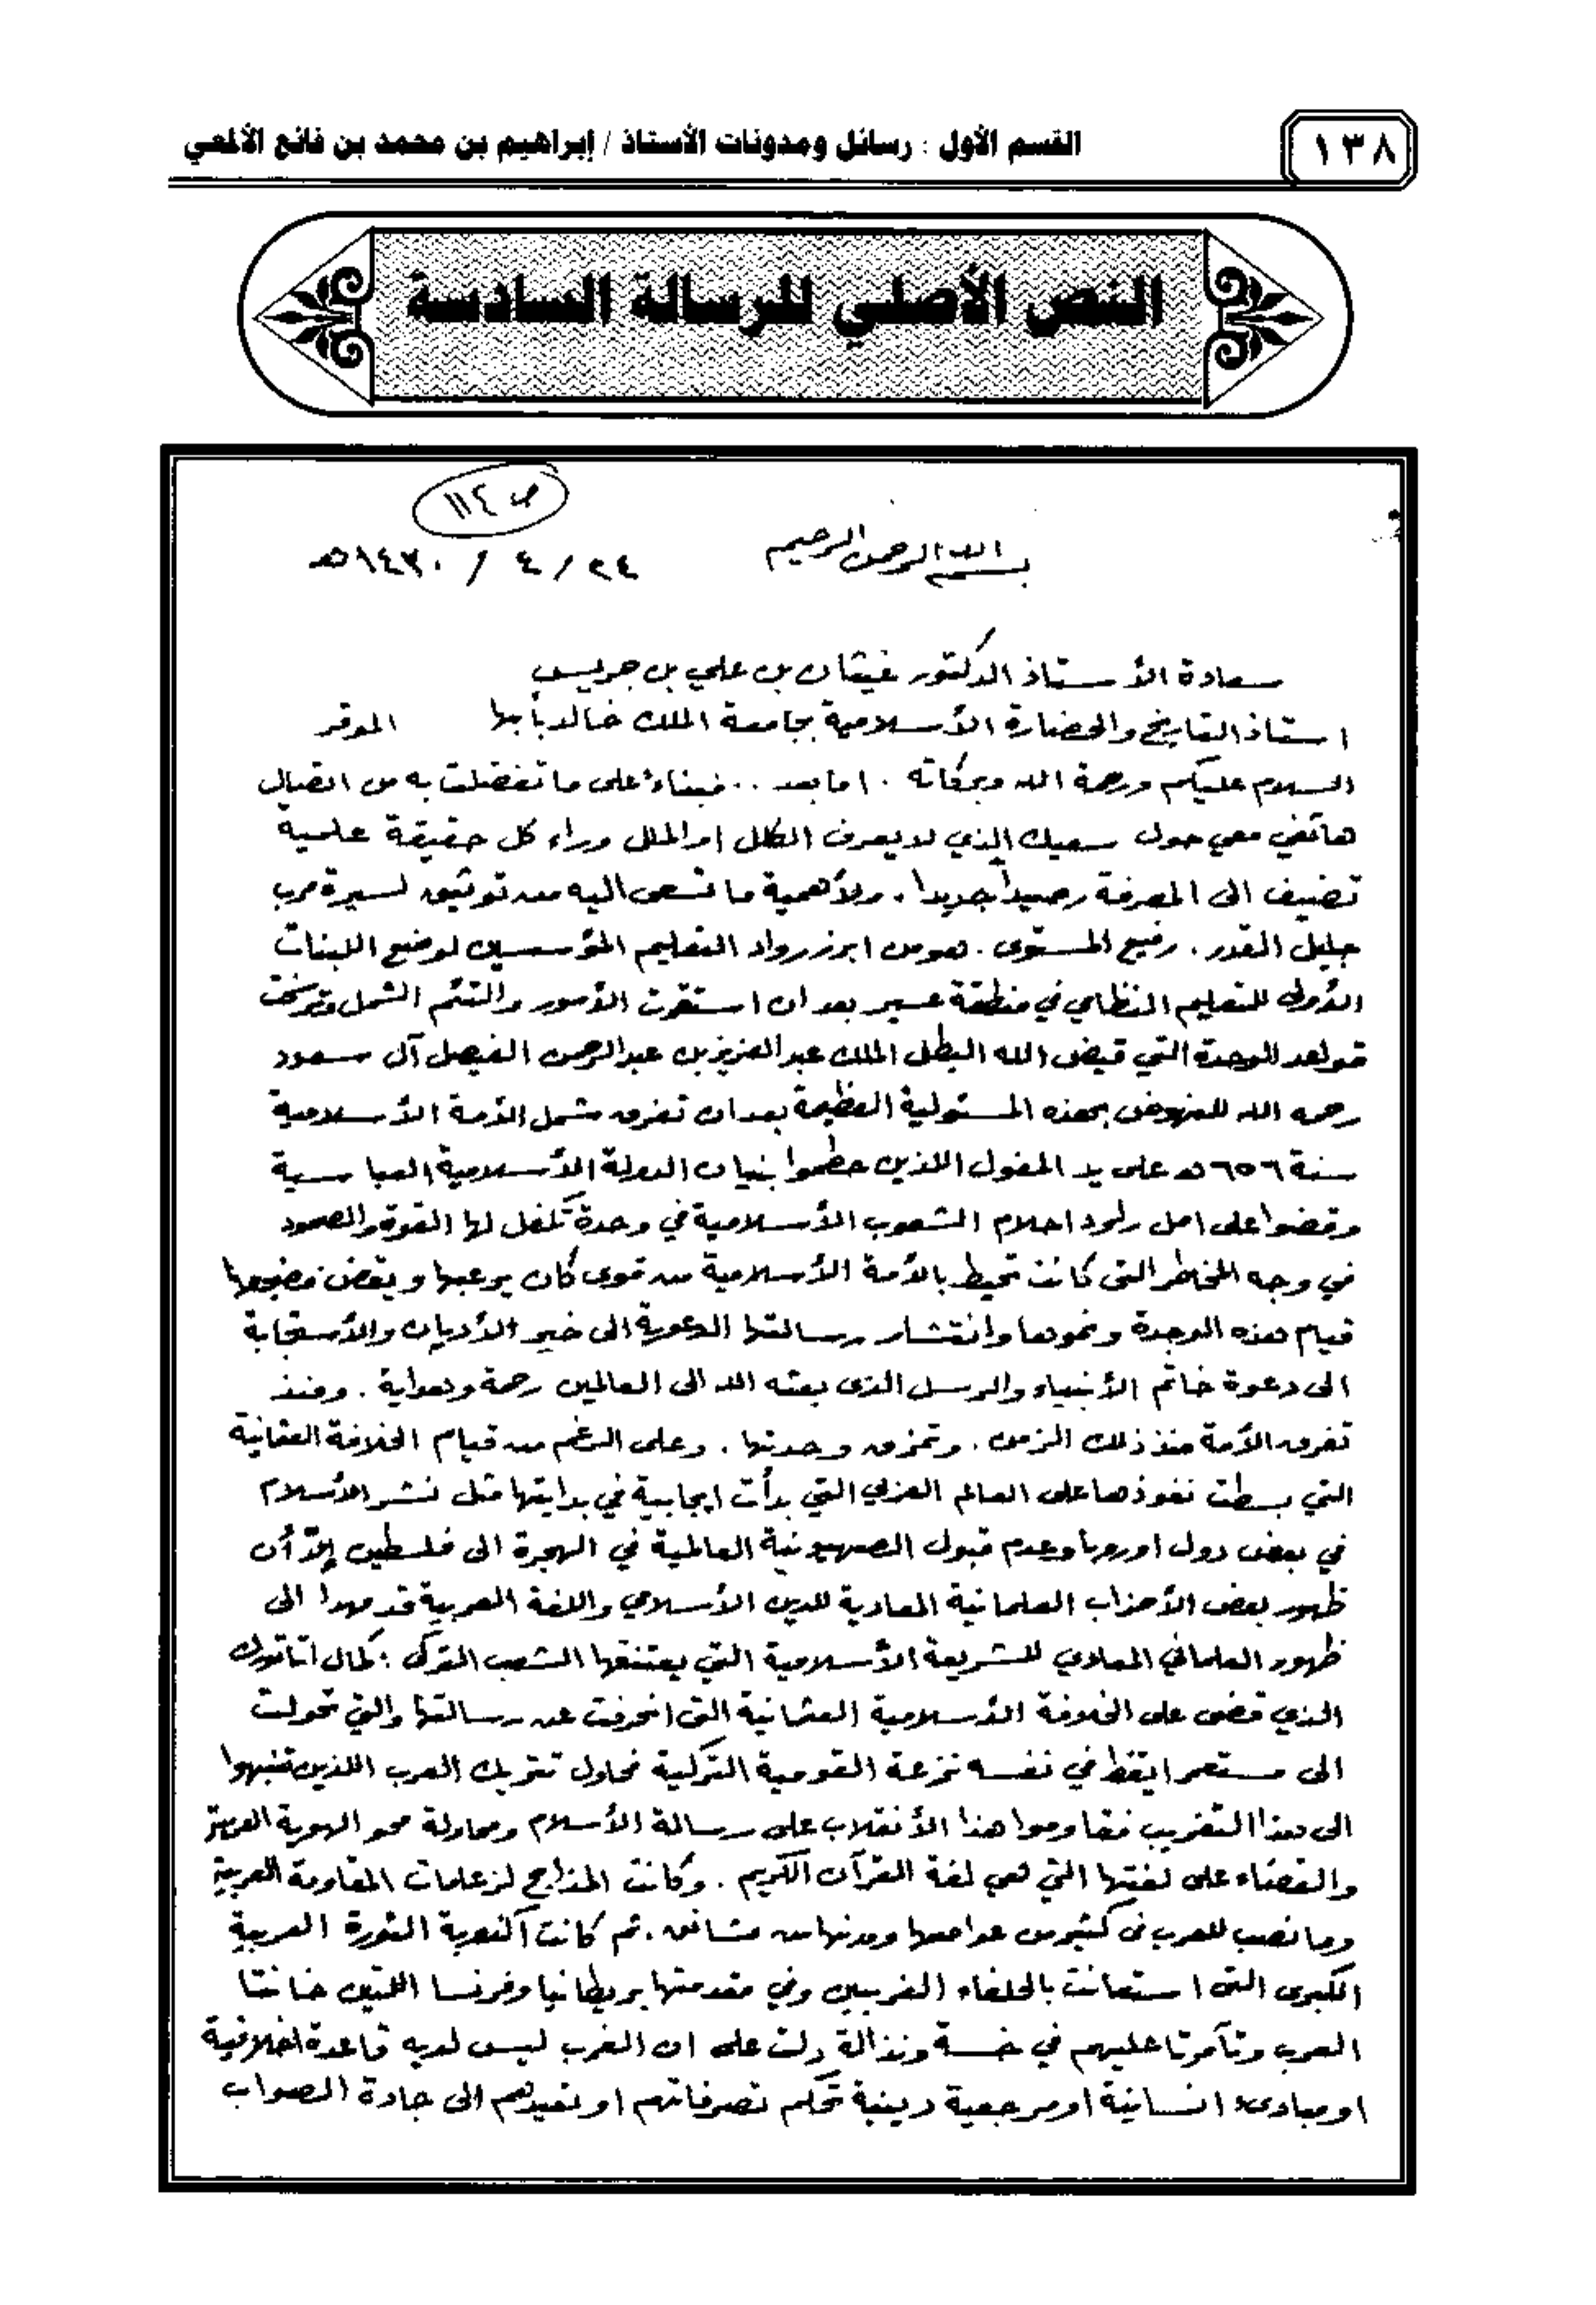 ١٣٨
القسم الأول : رسائل ومدونات الأستاذ / إبراهيم بن محمد بن فائع الألمعي
النص الأصلي للرسالة السادسة
ص ١١٤
بسم الله الرحمن الرحيم
٢٤ / ٤ / ١٤٣٠هـ
سعادة الأستاذ الدكتور غيثان بن علي بن جريس
استاذ التاريخ والحضارة الأسلامية بجامعة الملك خالد بأبها الموقر
السلام عليكم ورحمة الله وبركاته . اما بعد .. فبناءً على ما تفضلت به من اتصال
هاتفي معي حول سعيك الذي لا يعرف الكلل او الملل وراء كل حقيقة علمية
تضيف الى المعرفة رصيداً جديدا . ولأهمية ما تسعى اليه من توثيق لسيرة مرب
جليل القدر . رفيع المستوى . هو من ابرز رواد التعليم المؤسسين لوضع اللبنات
الأولى للتعليم النظامي في منطقة عسير بعد ان استقرت الأمور والتئم الشمل وترسخت
قواعد الوحدة التي قيض الله البطل الملك عبدالعزيز بن عبدالرحمن الفيصل آل سعود
رحمه الله للنهوض بهذه المسئولية العظيمة بعد ان تفرق شمل الأمة الأسلامية
سنة ٦٥٦هـ على يد المغول اللذين حطموا بنيان الدولة الأسلامية العباسية
وقضوا على امل راود احلام الشعوب الأسلامية في وحدة تكفل لها القوة والصمود
في وجه المخاطر التى كانت تحيط بالأمة الأسلامية من قوى كان يرعبها ويقض مضجعها
قيام هذه الوحدة ونموها وانتشار رسالتها الدعوية الى خير الأديان والأستجابة
الى دعوة خاتم الأنبياء والرسل الذى بعثه الله الى العالمين رحمة وهداية . ومنذ
تفرق الأمة منذ ذلك الزمن . وتمزق وحدتها . وعلى الرغم من قيام الخلافة العثمانية
التي بسطت نفوذها على العالم العربي التي بدأت إيجابية في بدايتها مثل نشر الأسلام
في بعض دول اوروبا وعدم قبول الصهيونية العالمية في الهجرة الى فلسطين إلاّ أن
ظهور بعض الأحزاب العلمانية المعادية للدين الأسلامي واللغة العربية قد مهدا الى
ظهور العلماني المعادي للشريعة الأسلامية التي يعتنقها الشعب التركى : كمال اتاتورك
الذي قضى على الخلافة الأسلامية العثمانية التى انحرفت عن رسالتها والتي تحولت
الى مستعمر ايقظ في نفسه نزعة القومية التركية فحاول تتريك العرب اللذين تنبهوا
الى هذا التغريب فقاوموا هذا الأنقلاب على رسالة الأسلام ومحاولة محو الهوية العربية
والقضاء على لغتها التي هي لغة القرآن الكريم . وكانت المذابح لزعامات المقاومة العربية
وما نصب للعرب فى كثير من عواصمها ومدنها من مشانق . ثم كانت اكذوبة الثورة العربية
الكبرى التى استعانت بالحلفاء الغربيين وفي مقدمتها بريطانيا وفرنسا اللتين خانتا
العرب وتآمرتا عليهم في خسة ونذالة دلت على ان الغرب ليس لديه قاعدة اخلاقية
او مبادىء انسانية او مرجعية دينية تحكم تصرفاتهم او تعيدهم الى جادة الصواب